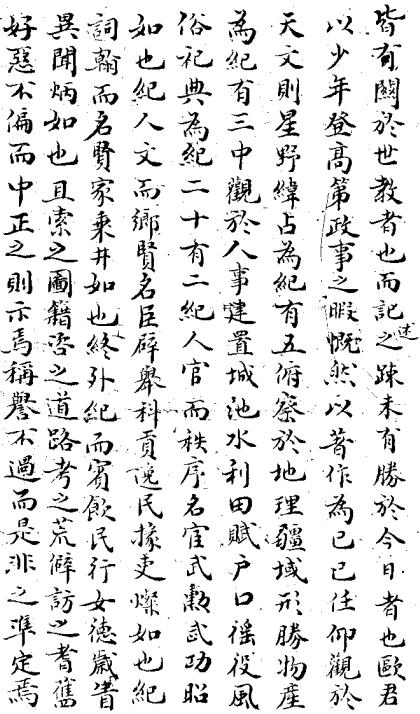 皆有關於世教者也而記之述疎未有勝於今日者也歐君
以少年登高第政事之暇慨然以著作為已已任仰觀於
天文則星野緯占為紀有五俯察於地理疆域形勝物產
為紀有三中觀於人事建置城池水利田賦戶口徭役風
俗祀典為紀二十有二紀人官而秩序名宦武勲武功昭
如也紀人文而鄉賢名臣辟舉科貢逸民掾吏燦如也紀
詞翰而名賢家乗井如也終外紀而賓飲民行女德嵗眚
異聞炳如也且索之圖籍咨之道路考之荒僻訪之耆舊
好惡不偏而中正之則示焉稱譽不過而是非之準定焉